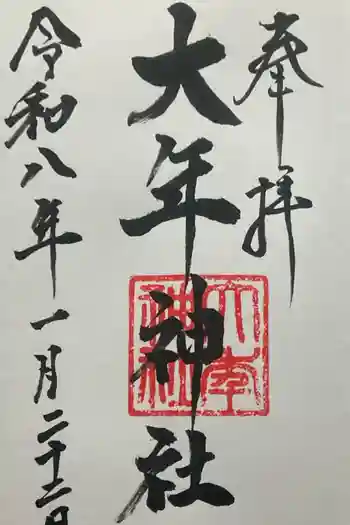 奉拝
大年神社
大年神社
令和八年一月二十二日